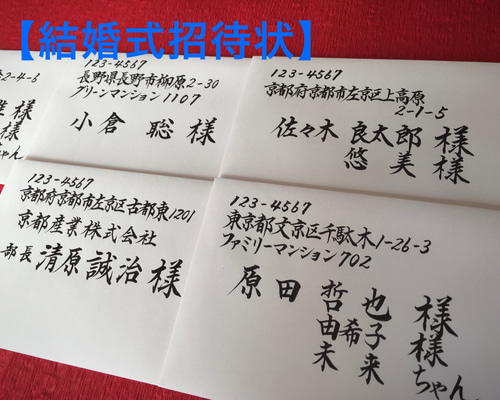 【結婚式招待状】
2-4-6
様
様
ちゃん
123-4567
長野県長野市柳原2-30
グリーンマンション1107
小倉 聡 様
123-4567
京都府京都市左京区上高原
2-1-5
佐々木 良太郎 様
悠美 様
123-4567
京都府京都市左京区古都東1201
京都産業株式会社
部長 清原誠治 様
123-4567
東京都文京区千駄木1-26-3
ファミリーマンション702
原田 哲也 様
由希子 様
未来 ちゃん